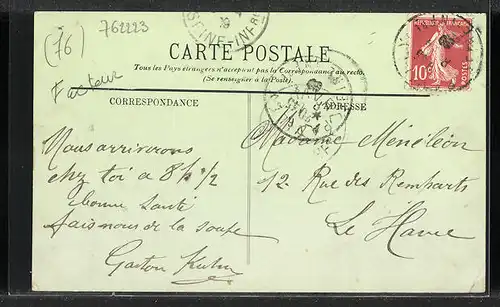 (76) 762223
SEINE-INFRE
CARTE POSTALE
Tous les Pays étrangers n'acceptent pas la Correspondance au recto.
(Se renseigner à la Poste).
RÉPUBLIQUE FRANÇAISE
10c
POSTES
Facteur
CORRESPONDANCE
ADRESSE
Nous arriverons
chez toi a 8h 1/2
bonne santé
fais nous de la soupe
Gaston Kuhn
Madame Ménéléon
12 Rue des Remparts
Le Havre